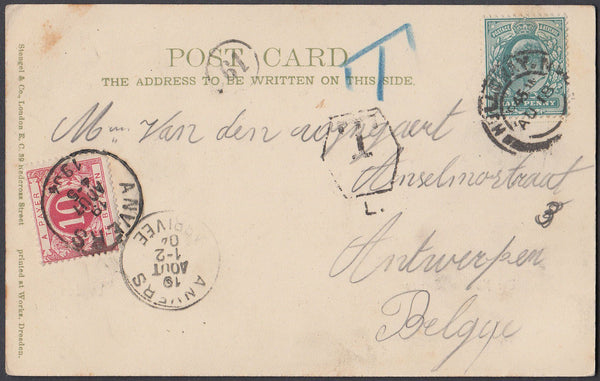 POST CARD
THE ADDRESS TO BE WRITTEN ON THIS SIDE.
T
HALF PENNY
Mme Van den Wyngaert
T
L.
Anselmostraat
Antwerpen
Belgie
A PAYER
10
ANVERS
ANVERS
ARRIVEE
19
AOUT
1-2
Stengel & Co., London E. C. 39 Redcross Street printed at Works. Dresden.